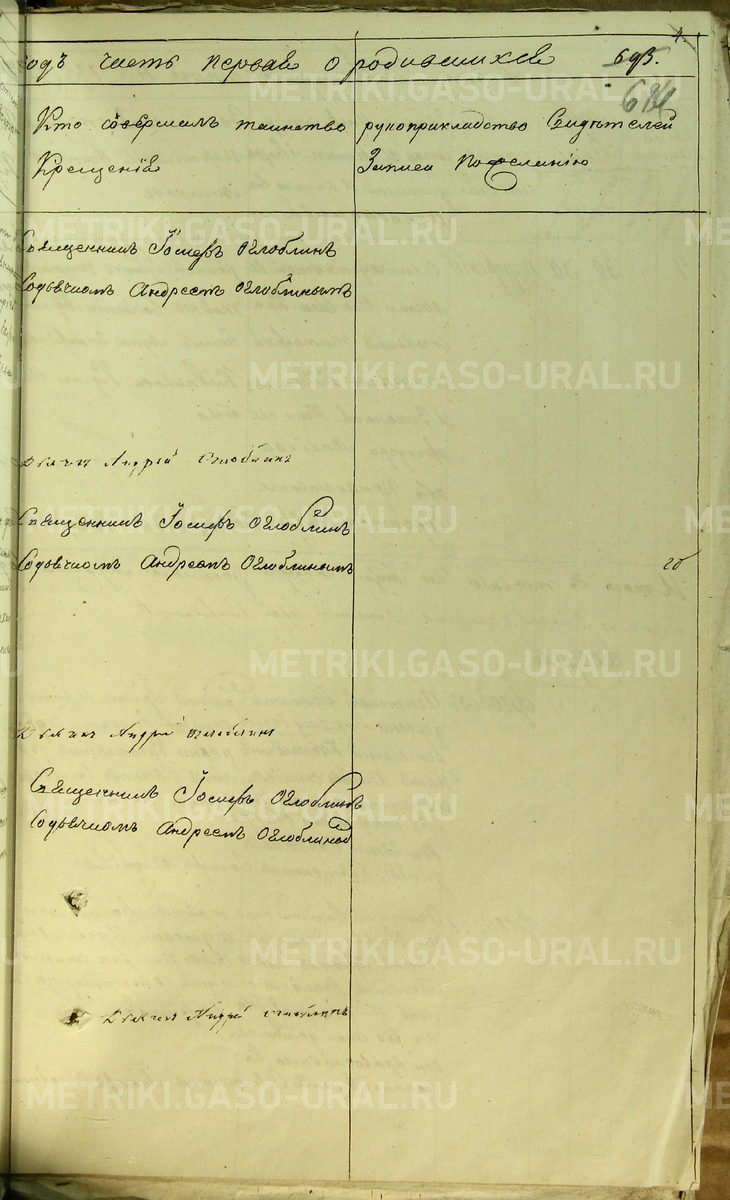 4.
годъ часть первая о родившихся 693.
684
Кто совершалъ таинство рукоприкладство Свидѣтелей
Крещенія Записи по желанію
Священникъ Іосифъ Оглоблинъ
Содьячкомъ Андреемъ Оглоблинымъ
Дьячекъ Андрей Оглоблинъ
Священникъ Іосифъ Оглоблинъ
Содьячкомъ Андреемъ Оглоблинымъ
Дьячекъ Андрей Оглоблинъ
Священникъ Іосифъ Оглоблинъ
Содьячкомъ Андреемъ Оглоблиным
Дьячекъ Андрей Оглоблинъ
METRIKI.GASO-URAL.RU